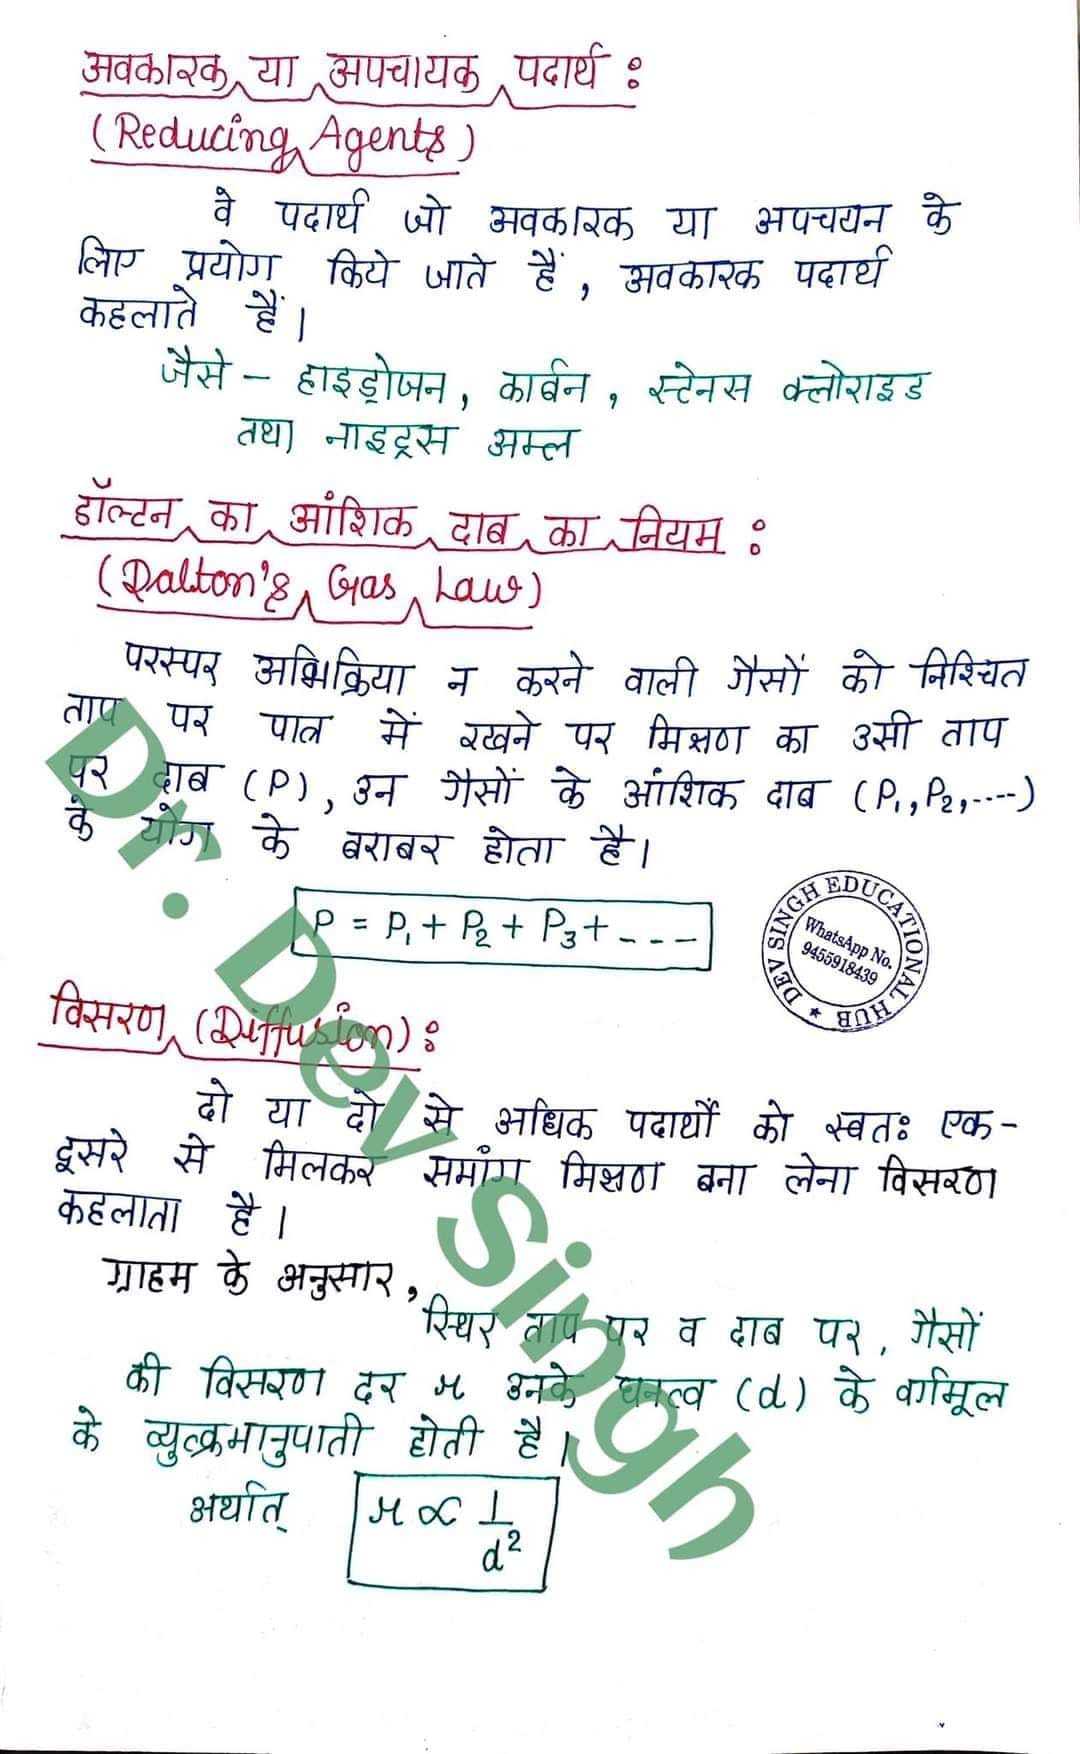 अवकारक या अपचायक पदार्थ :
(Reducing Agents)
वे पदार्थ जो अवकारक या अपचयन के
लिए प्रयोग किये जाते हैं, अवकारक पदार्थ
कहलाते हैं।
जैसे – हाइड्रोजन, कार्बन, स्टेनस क्लोराइड
तथा नाइट्रस अम्ल
डॉल्टन का आंशिक दाब का नियम :
(Dalton's Gas Law)
परस्पर अभिक्रिया न करने वाली गैसों को निश्चित
ताप पर पात्र में रखने पर मिश्रण का उसी ताप
पर दाब (P), उन गैसों के आंशिक दाब (P₁, P₂, ----)
के योग के बराबर होता है।
P = P₁ + P₂ + P₃ + - - - -
DEV SINGH EDUCATIONAL HUB ★
WhatsApp No.
9455918439
विसरण (Diffusion) :
दो या दो से अधिक पदार्थों को स्वतः एक-
दूसरे से मिलकर समांग मिश्रण बना लेना विसरण
कहलाता है।
ग्राहम के अनुसार,
स्थिर ताप पर व दाब पर, गैसों
की विसरण दर r उनके घनत्व (d) के वर्गमूल
के व्युत्क्रमानुपाती होती है।
अर्थात् r ∝ 1/d²
Dr. Dev Singh